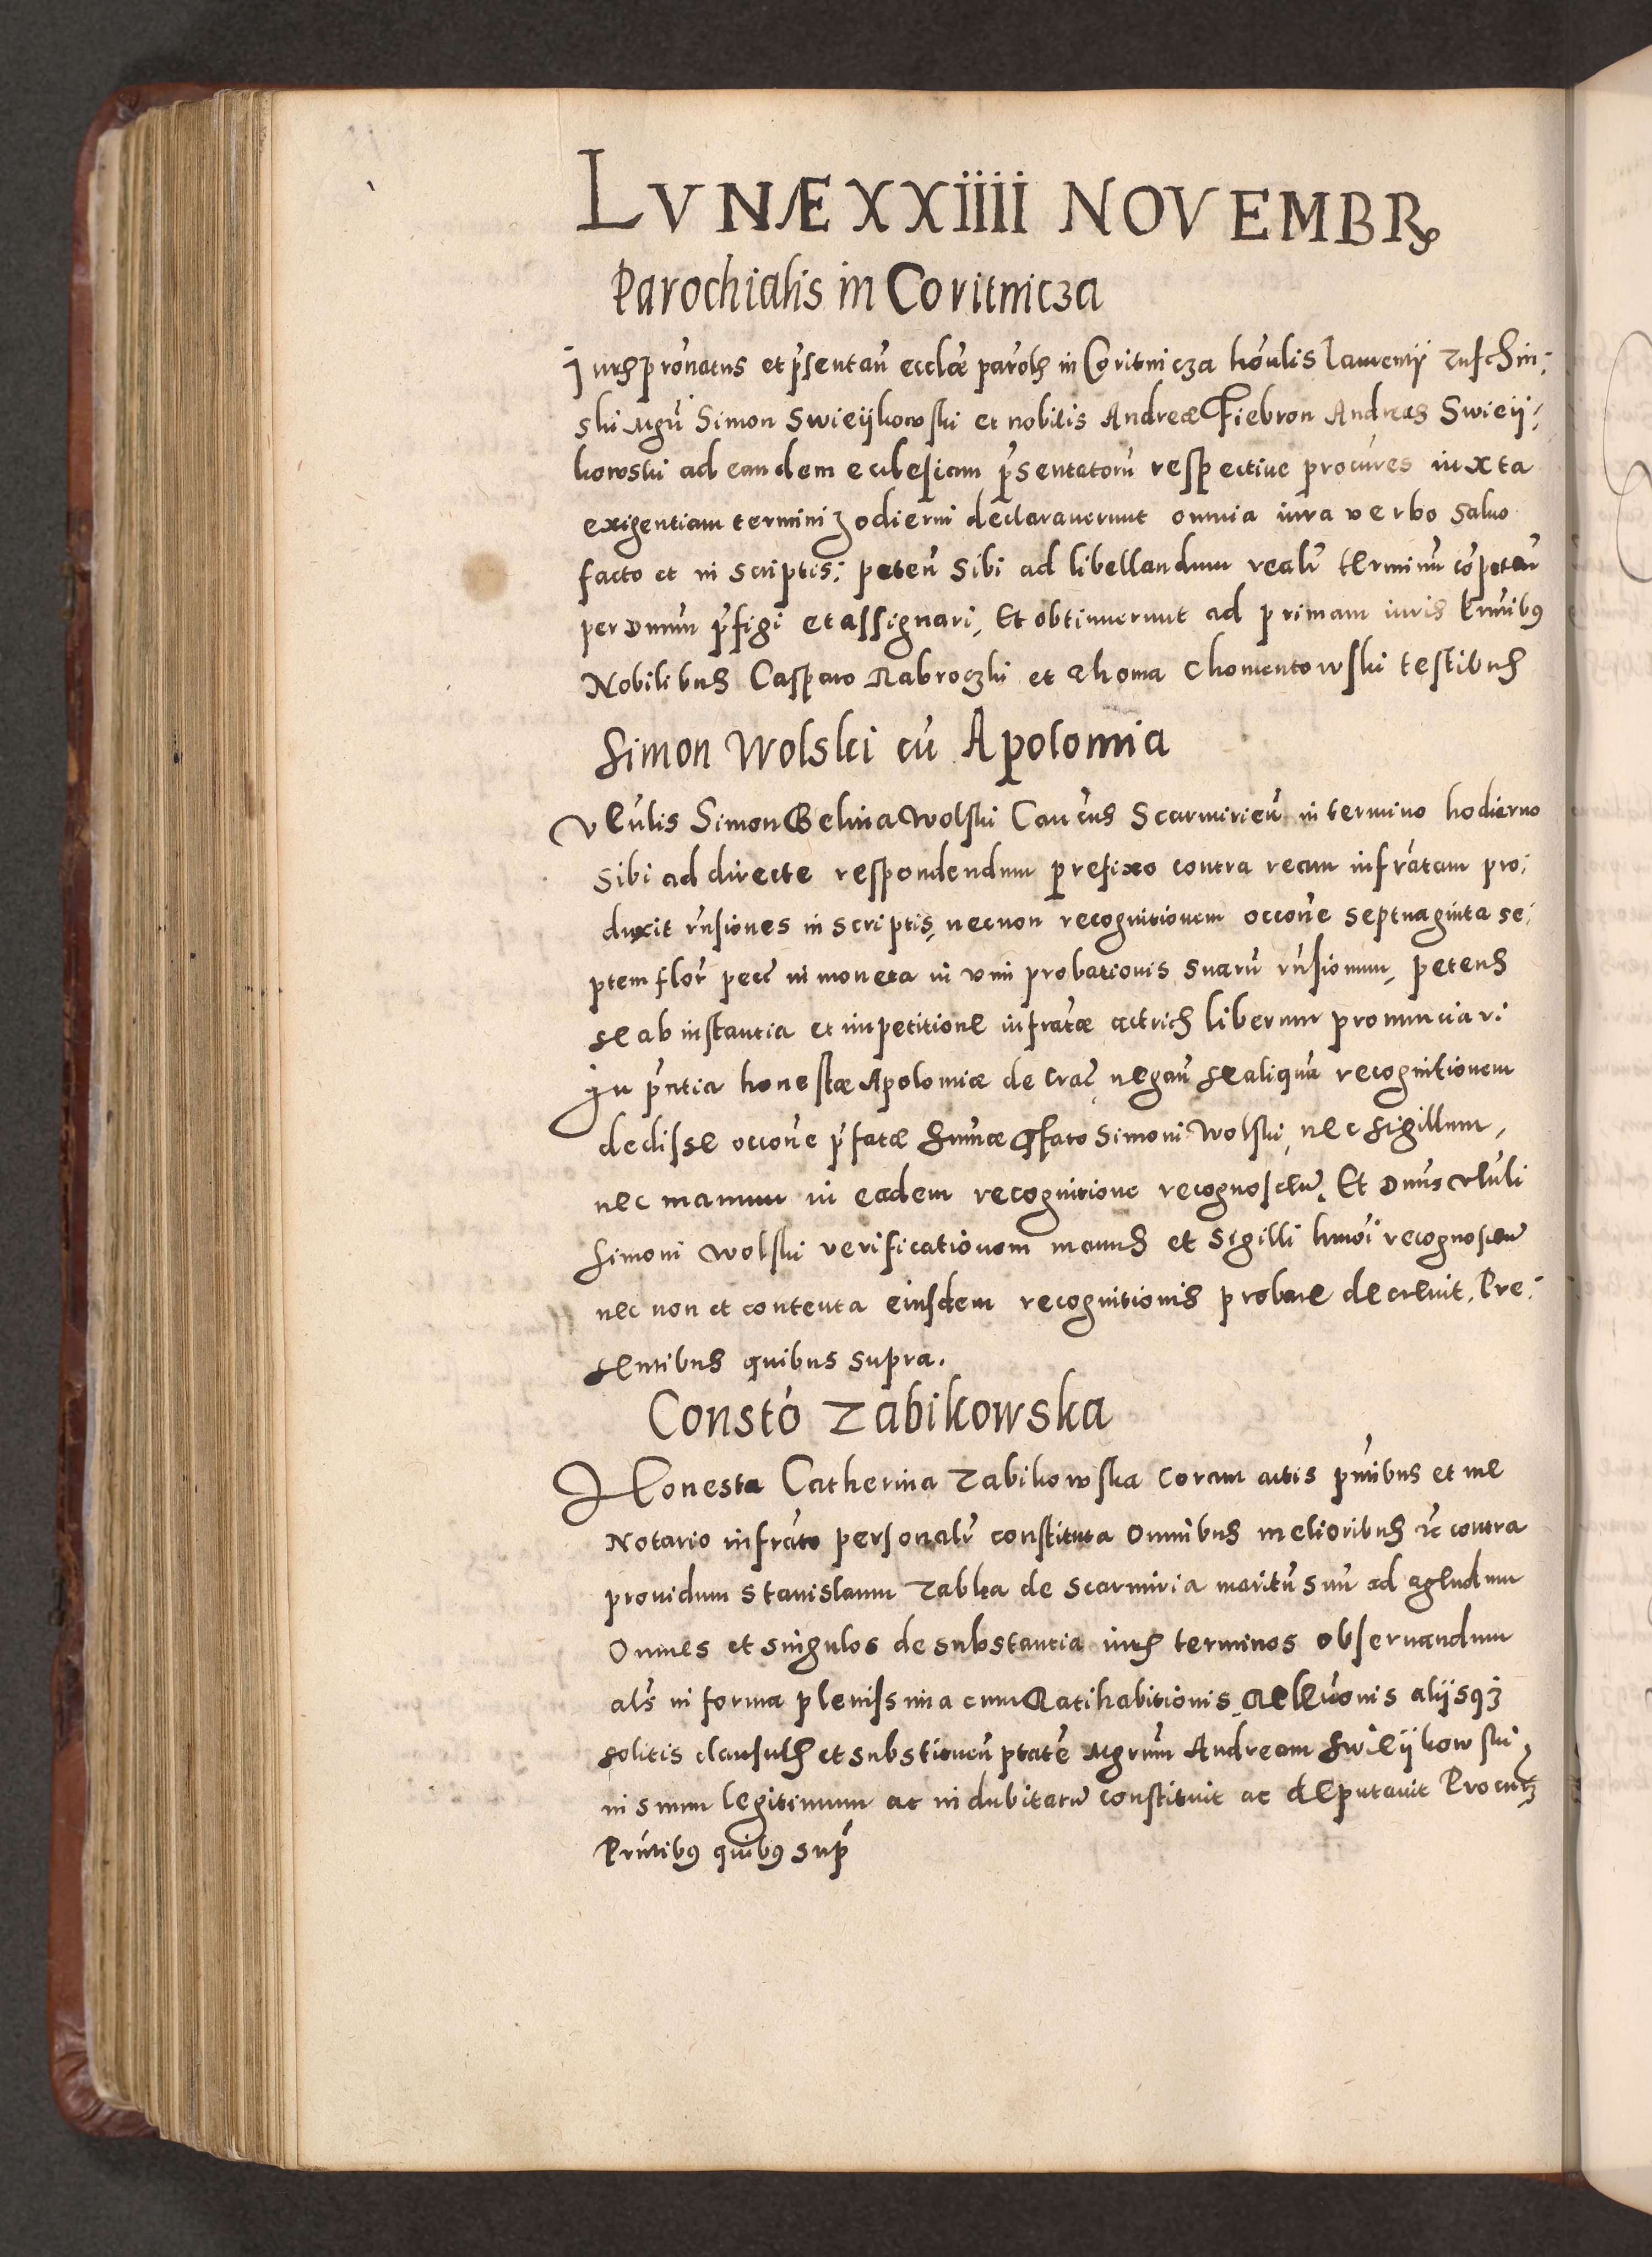 LVNÆ XXiiii NOVEMBR
Parochialis in Coritnicza
Juris pronatus et pñsentañ ecclæ paroh in Coritnicza hoñulis Laurentÿ Tuschin:
ski Mgñ Simon Swieÿkowski et nobilis Andreæ Fiebron Andreas Swieÿ:
kowski ad eandem eclesiam pñsentatorũ respectiue procures iuxta
exigentiam termini hodierni declarauerunt omnia iura verbo Saluo
facto et in scriptis: peteñ Sibi ad libellandum realr̃ terminũ cõpeteñ
per Dnum pr̃figi et assignari, Et obtinuerunt ad primam iuris hm̃ibus
Nobilibus Casparo Rabroczki et Thoma Chomentowski testibus
Simon Wolski cũ Apolonia
Vlẽulis Simon Belina Wolski Canc̃us Scarmirieñ in termino hodierno
Sibi ad directe respondendum prefixo contra ream infrãtam pro:
duxit rñsiones in scriptis, necnon recognitionem occõne septuaginta se:
ptem florẽ pecc̃ in moneta in vim probationis Suarũ rñsionum, petens
se ab instantia et impetitione infratæ actricis liberum pronunciari
In pñtia honestæ Apoloniæ de Crac̃, negañ se aliquã recognitionem
dedisse occõne pr̃fatæ summæ pfato Simoni Wolski, nec sigillum,
nec manum in eadem recognitione recognosceñ. Et Dnus Vluli
Simoni Wolski verificationem manus et Sigilli hmõi recognosceñ
nec non et contenta eiusdem recognitionis probare decreuit. Pre:
sentibus quibus supra.
Constõ Zabikowska
Honesta Catherina Zabikowska coram actis pñtibus et me
Notario infrãto personalr̃ constituta Omnibus melioribus ꝛc contra
prouidum Stanislaum Zabka de Scarmiria maritũ Suũ ad agendum
Omnes et singulos de substantia iuris terminos obseruandum
alr̃ in forma plenissima cum Ratihabitionis, Releuõnis alijsqz
solitis clausulis et substitueñ ptatẽ Mgrũm Andream Swieÿkowski,
in suum legitimum ac indubitatũ constituit ac deputauit Procurẽ
Prñtibus quibus sup̃